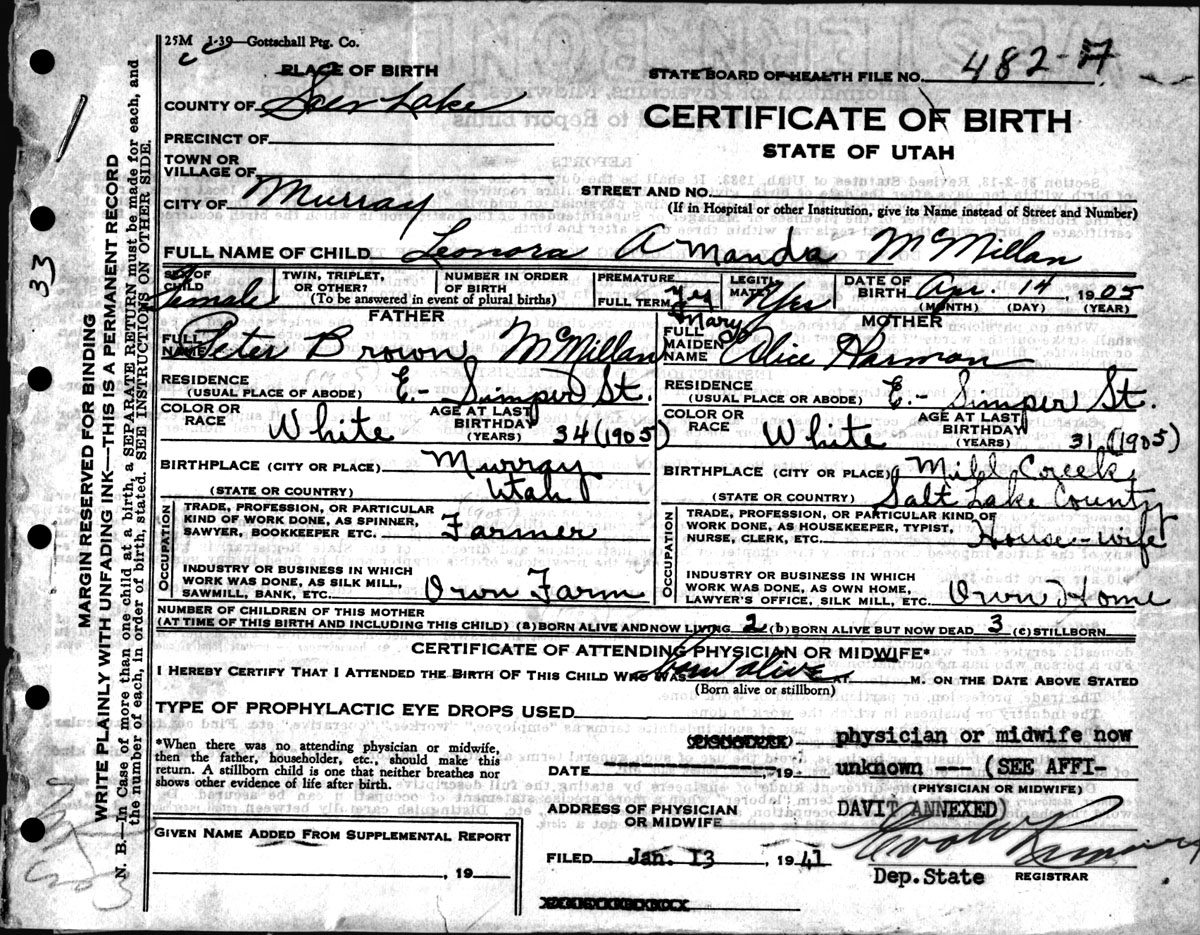 25M 1-39—Gottschall Ptg. Co.
PLACE OF BIRTH
STATE BOARD OF HEALTH FILE NO. 482-7
COUNTY OF Salt Lake
CERTIFICATE OF BIRTH
PRECINCT OF
STATE OF UTAH
TOWN OR
VILLAGE OF
STREET AND NO.
CITY OF Murray
(If in Hospital or other Institution, give its Name instead of Street and Number)
FULL NAME OF CHILD Leonora Amanda McMillan
SEX OF CHILD Female
TWIN, TRIPLET, OR OTHER?
NUMBER IN ORDER OF BIRTH
(To be answered in event of plural births)
PREMATURE
FULL TERM Yes
LEGITIMATE? Yes
DATE OF BIRTH Apr. 14, 1905
(MONTH) (DAY) (YEAR)
FATHER
FULL NAME Peter Brown McMillan
RESIDENCE (USUAL PLACE OF ABODE) E.- Simper St.
COLOR OR RACE White
AGE AT LAST BIRTHDAY (YEARS) 34 (1905)
BIRTHPLACE (CITY OR PLACE) Murray
(STATE OR COUNTRY) Utah
OCCUPATION
TRADE, PROFESSION, OR PARTICULAR
KIND OF WORK DONE, AS SPINNER,
SAWYER, BOOKKEEPER ETC. Farmer
INDUSTRY OR BUSINESS IN WHICH
WORK WAS DONE, AS SILK MILL,
SAWMILL, BANK, ETC. Own Farm
MOTHER
FULL MAIDEN NAME Mary Alice Harman
RESIDENCE (USUAL PLACE OR ABODE) E.- Simper St.
COLOR OR RACE White
AGE AT LAST BIRTHDAY (YEARS) 31 (1905)
BIRTHPLACE (CITY OR PLACE) Mill Creek,
(STATE OR COUNTRY) Salt Lake County
OCCUPATION
TRADE, PROFESSION, OR PARTICULAR KIND OF
WORK DONE, AS HOUSEKEEPER, TYPIST,
NURSE, CLERK, ETC. House-wife
INDUSTRY OR BUSINESS IN WHICH
WORK WAS DONE, AS OWN HOME,
LAWYER'S OFFICE, SILK MILL, ETC. Own Home
NUMBER OF CHILDREN OF THIS MOTHER
(AT TIME OF THIS BIRTH AND INCLUDING THIS CHILD) (a) BORN ALIVE AND NOW LIVING 2 (b) BORN ALIVE BUT NOW DEAD 3 (c) STILLBORN
CERTIFICATE OF ATTENDING PHYSICIAN OR MIDWIFE*
I HEREBY CERTIFY THAT I ATTENDED THE BIRTH OF THIS CHILD WHO WAS born alive AT M. ON THE DATE ABOVE STATED
(Born alive or stillborn)
TYPE OF PROPHYLACTIC EYE DROPS USED
*When there was no attending physician or midwife,
then the father, householder, etc., should make this
return. A stillborn child is one that neither breathes nor
shows other evidence of life after birth.
physician or midwife now
DATE , 19 unknown --- (SEE AFFI-
(PHYSICIAN OR MIDWIFE)
ADDRESS OF PHYSICIAN OR MIDWIFE DAVIT ANNEXED)
GIVEN NAME ADDED FROM SUPPLEMENTAL REPORT
, 19
FILED Jan. 13, 1941
Dep.State REGISTRAR
MARGIN RESERVED FOR BINDING
WRITE PLAINLY WITH UNFADING INK—THIS IS A PERMANENT RECORD
N. B.—In Case of more than one child at a birth, a SEPARATE RETURN must be made for each, and
the number of each, in order of birth, stated. SEE INSTRUCTIONS ON OTHER SIDE.
33